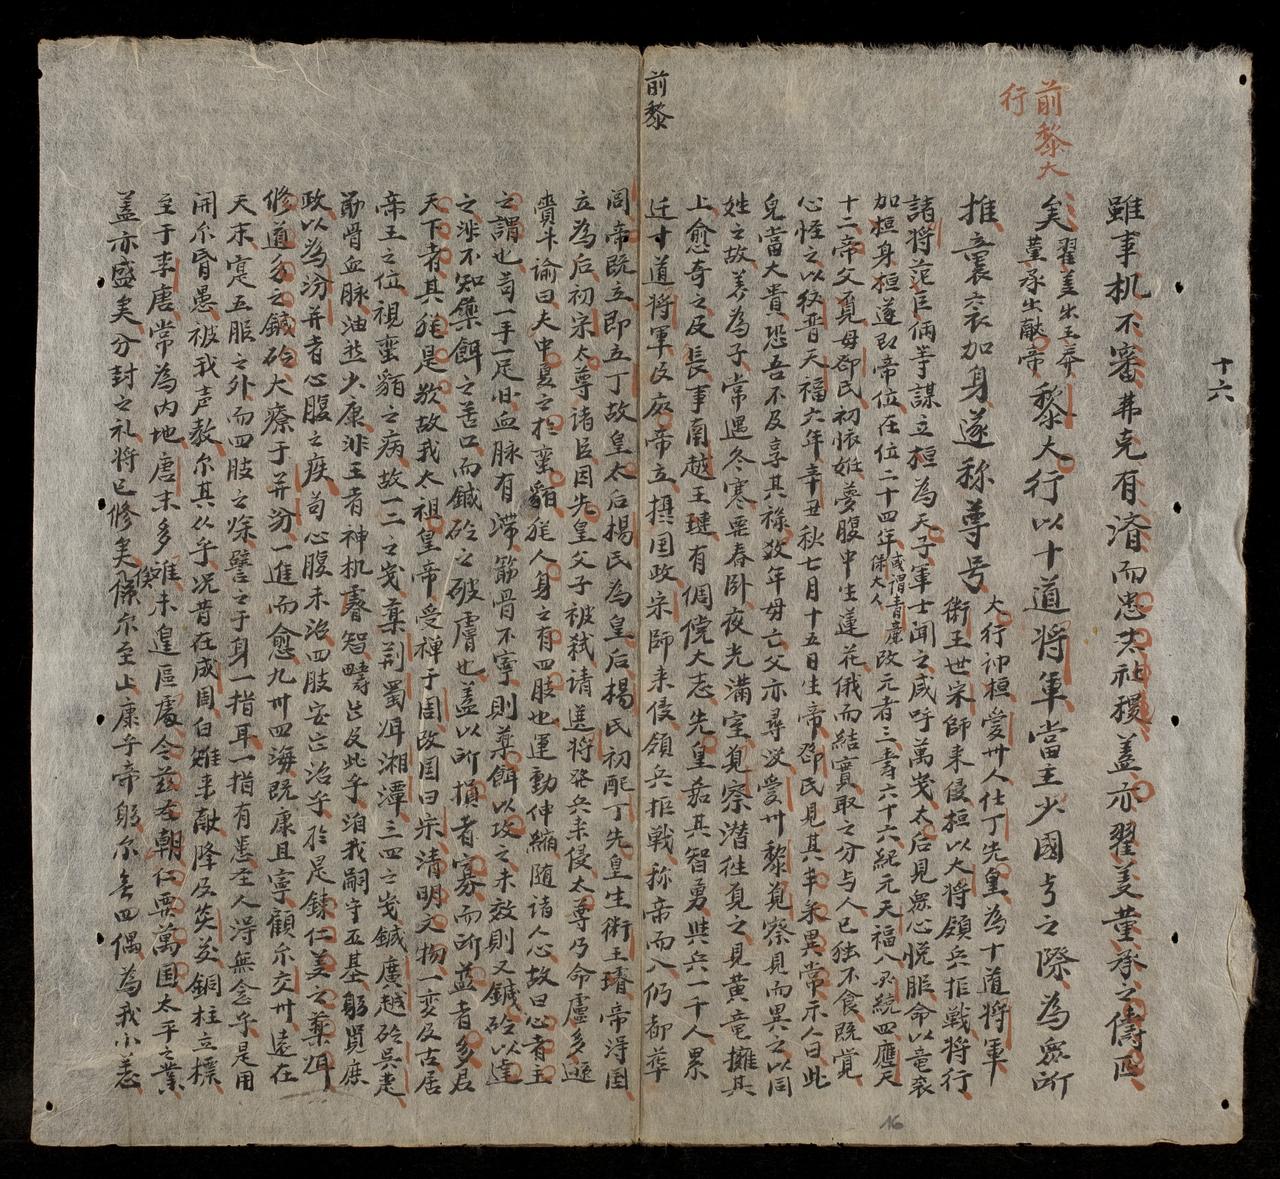 十六
前黎大
行
雖事机不審弗克有済而忠在社稷盖亦翟義董承之儔匹
矣翟義出王莽董承出献帝黎大行以十道将軍當主少國危之際為衆所
推竜袞衣加身遂称尊号大行神桓愛州人仕丁先皇為十道将軍
衛王世宋師来侵桓以大将領兵拒戦将行
諸将范巨倆等謀立桓為天子軍士聞之咸呼萬歳太后見衆心悦服命以竜袞
加桓身桓遂即帝位在位二十四年改元者三寿六十六紀元天福八興統四應天
十二帝父覓母鄧氏初懐姙夢腹中生蓮花俄而結實取之分与人已独不食既覚
心怪之以後晋天福六年辛丑秋七月十五日生帝鄧氏見其皃異常示人曰此
皃當大貴恐吾不及享其祿数年母亡父亦尋没愛州黎覓察見而異之以同
姓之故养為子常遇冬寒覂舂卧夜光滿室覓察潜徃覓之見黄竜擁其
上愈奇之及長事南越王璉有倜儻大志先皇嘉其智勇典兵一千人累
迁十道将軍及廃帝立摂国政宋師来侵領兵拒戦称帝而入仍都華
前黎
閭帝既立即立丁故皇太后揚氏為皇后揚氏初配丁先皇生衛王璿帝淂国
立為后初宋太尊诸臣因先皇父子被弒请遣将発兵来侵太尊乃命盧多遜
賷书諭曰夫中夏之於蛮貊猶人身之有四肢也運動伸縮随诸人心故曰心者主
之謂也苟一手一足旧血脉有滞筋骨不寧則薬餌以攻之未效則又鍼砭以達
之非不知藥餌之苦口而鍼砭之破膚也盖以所損者寡而所益者多君
天下者其猶是歟故我太祖皇帝受禅于周改国曰宋清明文物一変及古居
帝王之位視蛮貊之病故一二之歳薬荆蜀洱湘潭三四之歳鍼廣越砭呉楚
筋骨血脉油然少康非王者神机睿智疇呰及此乎洎我嗣守丕基躬覽庶
政以為汾并者心腹之疾苟心腹未治四肢安庀治乎於是錬仁义之薬洱
修道分之鍼砭大療于并汾一進而愈九州四海既康且寧顧尔交州遠在
天末寔五服之外而四肢之馀譬之于身一指耳一指有恙圣人淂無念乎是用
開尔昏愚被我声教尔其从乎况昔在成周白雉来献降及炎汉銅柱立標
至于李唐常為内地唐末多難未皇區處今兹圣朝仁覂萬国太平之業
盖亦盛矣分封之礼将已修矣俟尔至止康乎帝躬尔無四偶為我小恙